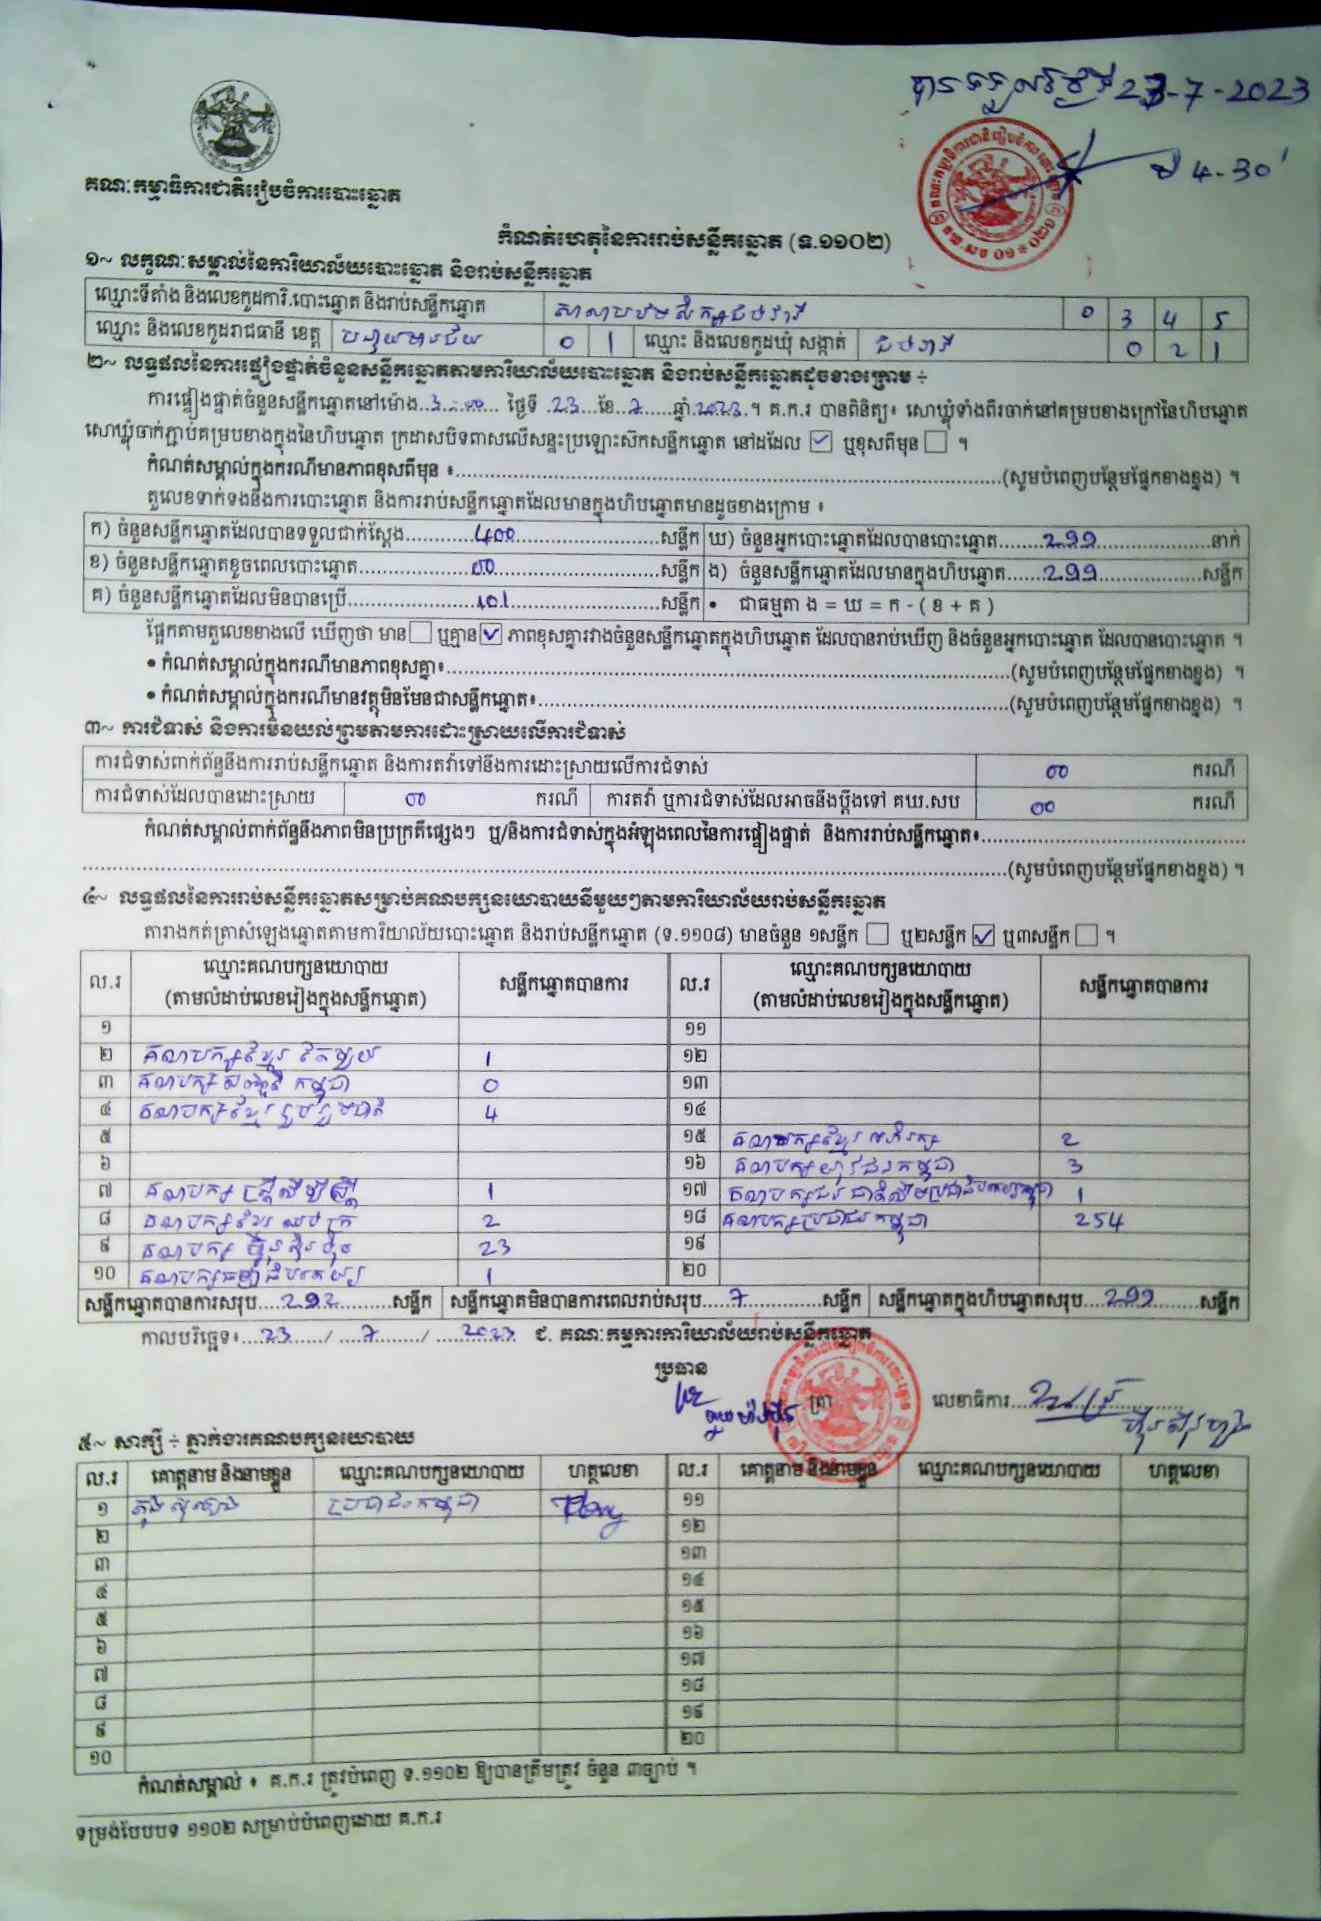 បានទទួលថ្ងៃទី 23-7-2023
ម៉ 4-30'
គណៈកម្មាធិការជាតិរៀបចំការបោះឆ្នោត
កំណត់ហេតុនៃការរាប់សន្លឹកឆ្នោត (ទ.១១០២)
១~ លក្ខណៈសម្គាល់នៃការិយាល័យបោះឆ្នោត និងរាប់សន្លឹកឆ្នោត
ឈ្មោះទីតាំង និងលេខកូដការិ.បោះឆ្នោត និងរាប់សន្លឹកឆ្នោត 0 3 4 5
ឈ្មោះ និងលេខកូដរាជធានី ខេត្ត បន្ទាយមានជ័យ 0 1 ឈ្មោះ និងលេខកូដឃុំ សង្កាត់ 0 2 1
២~ លទ្ធផលនៃការផ្ទៀងផ្ទាត់ចំនួនសន្លឹកឆ្នោតតាមការិយាល័យបោះឆ្នោត និងរាប់សន្លឹកឆ្នោតដូចខាងក្រោម ÷
ការផ្ទៀងផ្ទាត់ចំនួនសន្លឹកឆ្នោតនៅម៉ោង..3:00... ថ្ងៃទី .23...ខែ..7.....ឆ្នាំ.2023.។ គ.ក.រ បានពិនិត្យ៖ សោឃ្លុំទាំងពីរចាក់នៅគម្របខាងក្រៅនៃហិបឆ្នោត
សោឃ្លុំចាក់ភ្ជាប់គម្របខាងក្នុងនៃហិបឆ្នោត ក្រដាសបិទពាសលើសន្ទះប្រឡោះស៊កសន្លឹកឆ្នោត នៅដដែល ☑ ឬខុសពីមុន ☐ ។
កំណត់សម្គាល់ក្នុងករណីមានភាពខុសពីមុន ៖....(សូមបំពេញបន្ថែមផ្នែកខាងខ្នង) ។
តួលេខទាក់ទងនឹងការបោះឆ្នោត និងការរាប់សន្លឹកឆ្នោតដែលមានក្នុងហិបឆ្នោតមានដូចខាងក្រោម ៖
ក) ចំនួនសន្លឹកឆ្នោតដែលបានទទួលជាក់ស្តែង....400....សន្លឹក ឃ) ចំនួនអ្នកបោះឆ្នោតដែលបានបោះឆ្នោត....299....នាក់
ខ) ចំនួនសន្លឹកឆ្នោតខូចពេលបោះឆ្នោត....00....សន្លឹក ង) ចំនួនសន្លឹកឆ្នោតដែលមានក្នុងហិបឆ្នោត....299....សន្លឹក
គ) ចំនួនសន្លឹកឆ្នោតដែលមិនបានប្រើ....101....សន្លឹក • ជាធម្មតា ង = ឃ = ក - ( ខ + គ )
ផ្អែកតាមតួលេខខាងលើ ឃើញថា មាន☐ ឬគ្មាន☑ ភាពខុសគ្នារវាងចំនួនសន្លឹកឆ្នោតក្នុងហិបឆ្នោត ដែលបានរាប់ឃើញ និងចំនួនអ្នកបោះឆ្នោត ដែលបានបោះឆ្នោត ។
• កំណត់សម្គាល់ក្នុងករណីមានភាពខុសគ្នា៖....(សូមបំពេញបន្ថែមផ្នែកខាងខ្នង) ។
• កំណត់សម្គាល់ក្នុងករណីមានវត្ថុមិនមែនជាសន្លឹកឆ្នោត៖....(សូមបំពេញបន្ថែមផ្នែកខាងខ្នង) ។
៣~ ការជំទាស់ និងការមិនយល់ព្រមតាមការដោះស្រាយលើការជំទាស់
ការជំទាស់ពាក់ព័ន្ធនឹងការរាប់សន្លឹកឆ្នោត និងការតវ៉ាទៅនឹងការដោះស្រាយលើការជំទាស់ 00 ករណី
ការជំទាស់ដែលបានដោះស្រាយ 00 ករណី ការតវ៉ា ឬការជំទាស់ដែលអាចនឹងប្តឹងទៅ គឃ.សប 00 ករណី
កំណត់សម្គាល់ពាក់ព័ន្ធនឹងភាពមិនប្រក្រតីផ្សេងៗ ឬ/និងការជំទាស់ក្នុងអំឡុងពេលនៃការផ្ទៀងផ្ទាត់ និងការរាប់សន្លឹកឆ្នោត៖....
....(សូមបំពេញបន្ថែមផ្នែកខាងខ្នង) ។
៤~ លទ្ធផលនៃការរាប់សន្លឹកឆ្នោតសម្រាប់គណបក្សនយោបាយនីមួយៗតាមការិយាល័យរាប់សន្លឹកឆ្នោត
តារាងកត់ត្រាសំឡេងឆ្នោតតាមការិយាល័យបោះឆ្នោត និងរាប់សន្លឹកឆ្នោត (ទ.១១០៨) មានចំនួន ១សន្លឹក ☐ ឬ២សន្លឹក ☑ ឬ៣សន្លឹក ☐ ។
ល.រ ឈ្មោះគណបក្សនយោបាយ (តាមលំដាប់លេខរៀងក្នុងសន្លឹកឆ្នោត) សន្លឹកឆ្នោតបានការ ល.រ ឈ្មោះគណបក្សនយោបាយ (តាមលំដាប់លេខរៀងក្នុងសន្លឹកឆ្នោត) សន្លឹកឆ្នោតបានការ
១ ១១
២ គណបក្សខ្មែរ តែមួយ 1 ១២
៣ គណបក្ស សញ្ជាតិ កម្ពុជា 0 ១៣
៤ គណបក្សខ្មែរ រួបរួមជាតិ 4 ១៤
៥ ១៥ គណបក្សខ្មែរ អភិរក្ស 2
៦ ១៦ គណបក្សយុវជនកម្ពុជា 3
៧ គណបក្ស ស្ត្រីដើម្បីស្ត្រី 1 ១៧ 1
៨ គណបក្សខ្មែរ ឈប់ក្រ 2 ១៨ គណបក្សប្រជាជនកម្ពុជា 254
៩ គណបក្ស ហ៊្វុនស៊ិនប៉ិច 23 ១៩
១០ គណបក្សធម្មាធិបតេយ្យ 1 ២០
សន្លឹកឆ្នោតបានការសរុប....292....សន្លឹក សន្លឹកឆ្នោតមិនបានការពេលរាប់សរុប....7....សន្លឹក សន្លឹកឆ្នោតក្នុងហិបឆ្នោតសរុប....299....សន្លឹក
កាលបរិច្ឆេទ៖...23..../ ...7..../ ....2023 ជ. គណៈកម្មការការិយាល័យរាប់សន្លឹកឆ្នោត
ប្រធាន
ត្រា លេខាធិការ....
៥~ សាក្សី ÷ ភ្នាក់ងារគណបក្សនយោបាយ
ល.រ គោត្តនាម និងនាមខ្លួន ឈ្មោះគណបក្សនយោបាយ ហត្ថលេខា ល.រ គោត្តនាម និងនាមខ្លួន ឈ្មោះគណបក្សនយោបាយ ហត្ថលេខា
១ ប្រជាជនកម្ពុជា ១១
២ ១២
៣ ១៣
៤ ១៤
៥ ១៥
៦ ១៦
៧ ១៧
៨ ១៨
៩ ១៩
១០ ២០
កំណត់សម្គាល់ ៖ គ.ក.រ ត្រូវបំពេញ ទ.១១០២ ឱ្យបានត្រឹមត្រូវ ចំនួន ៣ច្បាប់ ។
ទម្រង់បែបបទ ១១០២ សម្រាប់បំពេញដោយ គ.ក.រ